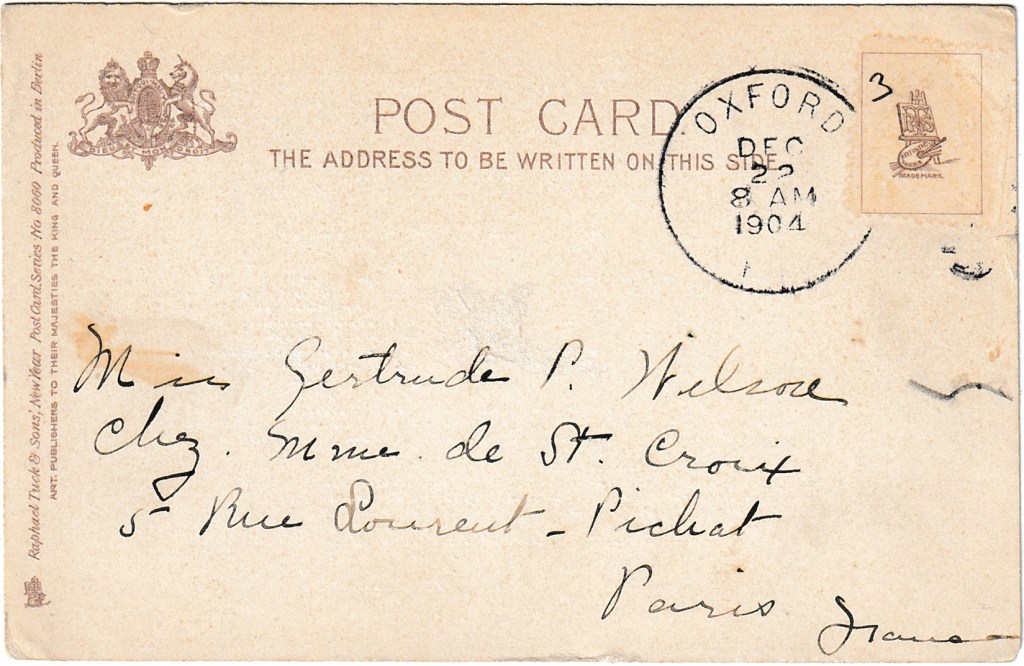 POST CARD
THE ADDRESS TO BE WRITTEN ON THIS SIDE
DIEU ET MON DROIT
OXFORD
DEC
22
8 AM
1904
3
R S
TRADE MARK.
Raphael Tuck & Sons', New Year Post Card, Series No 8060 Produced in Berlin
ART. PUBLISHERS TO THEIR MAJESTIES THE KING AND QUEEN.
Miss Gertrude P. Wilson
Chez. Mme. de St. Croix
5 Rue Lourent - Pichat
Paris
France